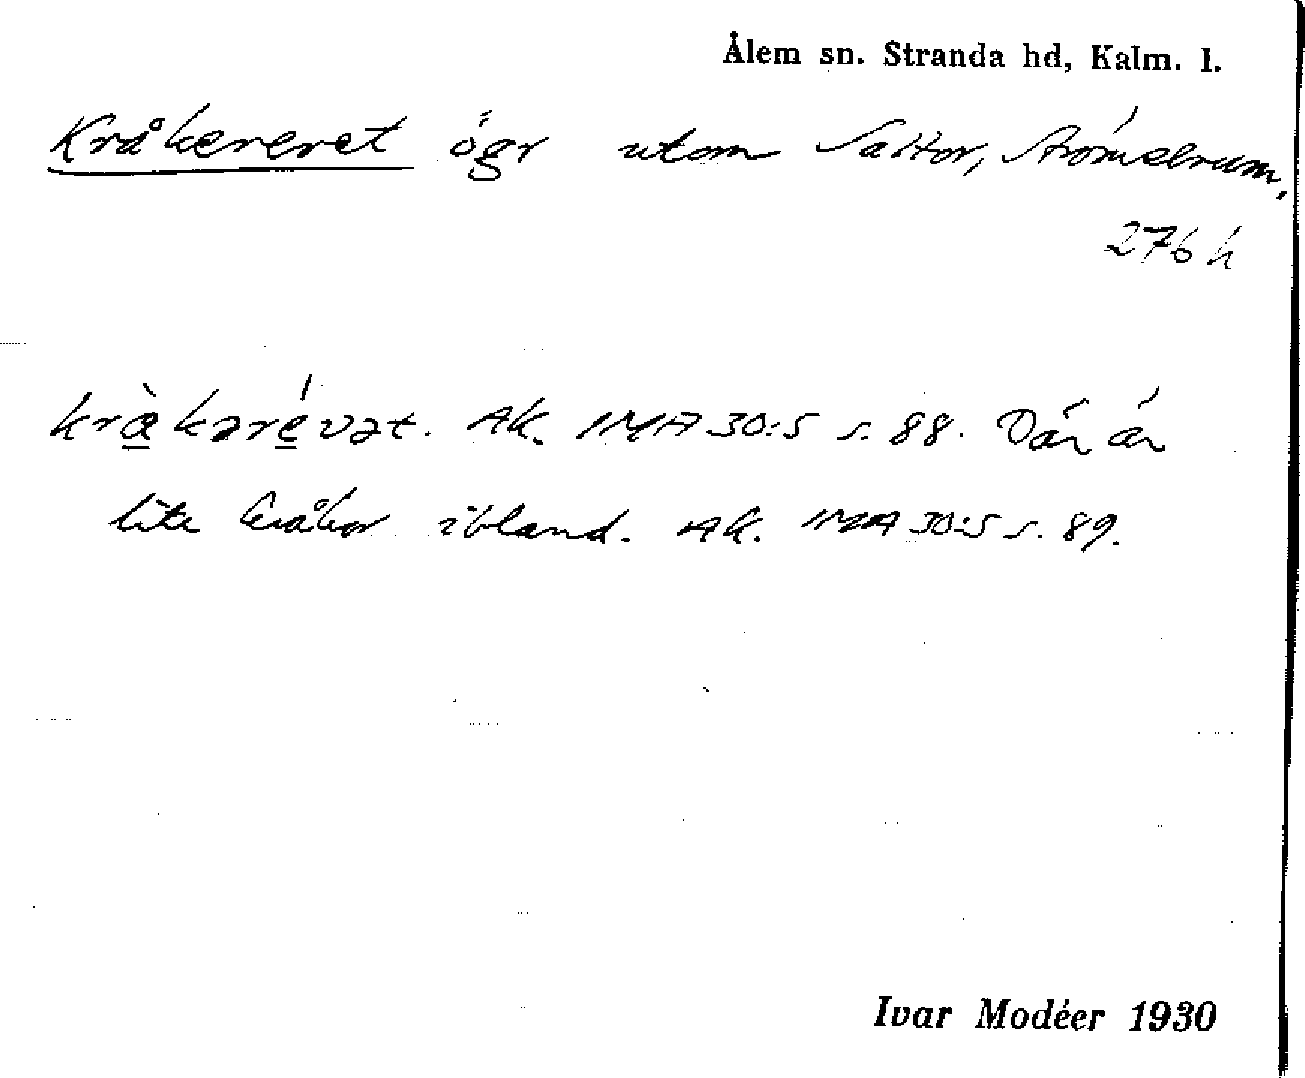 Ålem sn. Stranda hd, Kalm. l.
Kråkereret ögr utom Saltor, Strömsbrum,
276 h
kràkərévət. Ak. IMA 30:5 s. 88. Där är
lite kråkor ibland. Ak. IMA 30:5 s. 89.
Ivar Modéer 1930